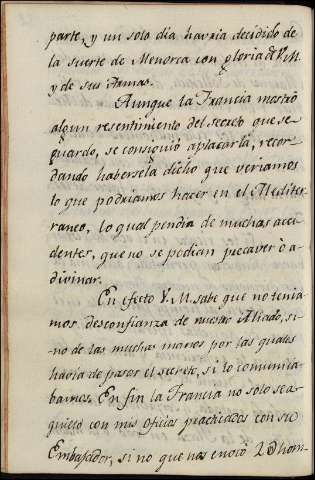 parte, y un solo dia havria decidido de
la suerte de Menorca con gloria de V.M.
y de sus Armas.
Aunque la Francia mostró
algun resentimiento del secreto que se
guardo, se consiguió aplacarla, recor
dando habersela dicho que veriamos
lo que podriamos hacer en el Mediter
raneo, lo qual pendia de muchas acci
dentes, que no se podian precaver ò a
divinar.
En efecto V.M. sabe que no tenia
mos desconfianza de nuestro Aliado, si-
no de las muchas manos por las quales
havia de pasar el secreto, si lo comunica
bamos. En fin la Francia no solo se a
quietó con mis oficios practicados con su
Embaxador, si no que nos envió 12 hom-